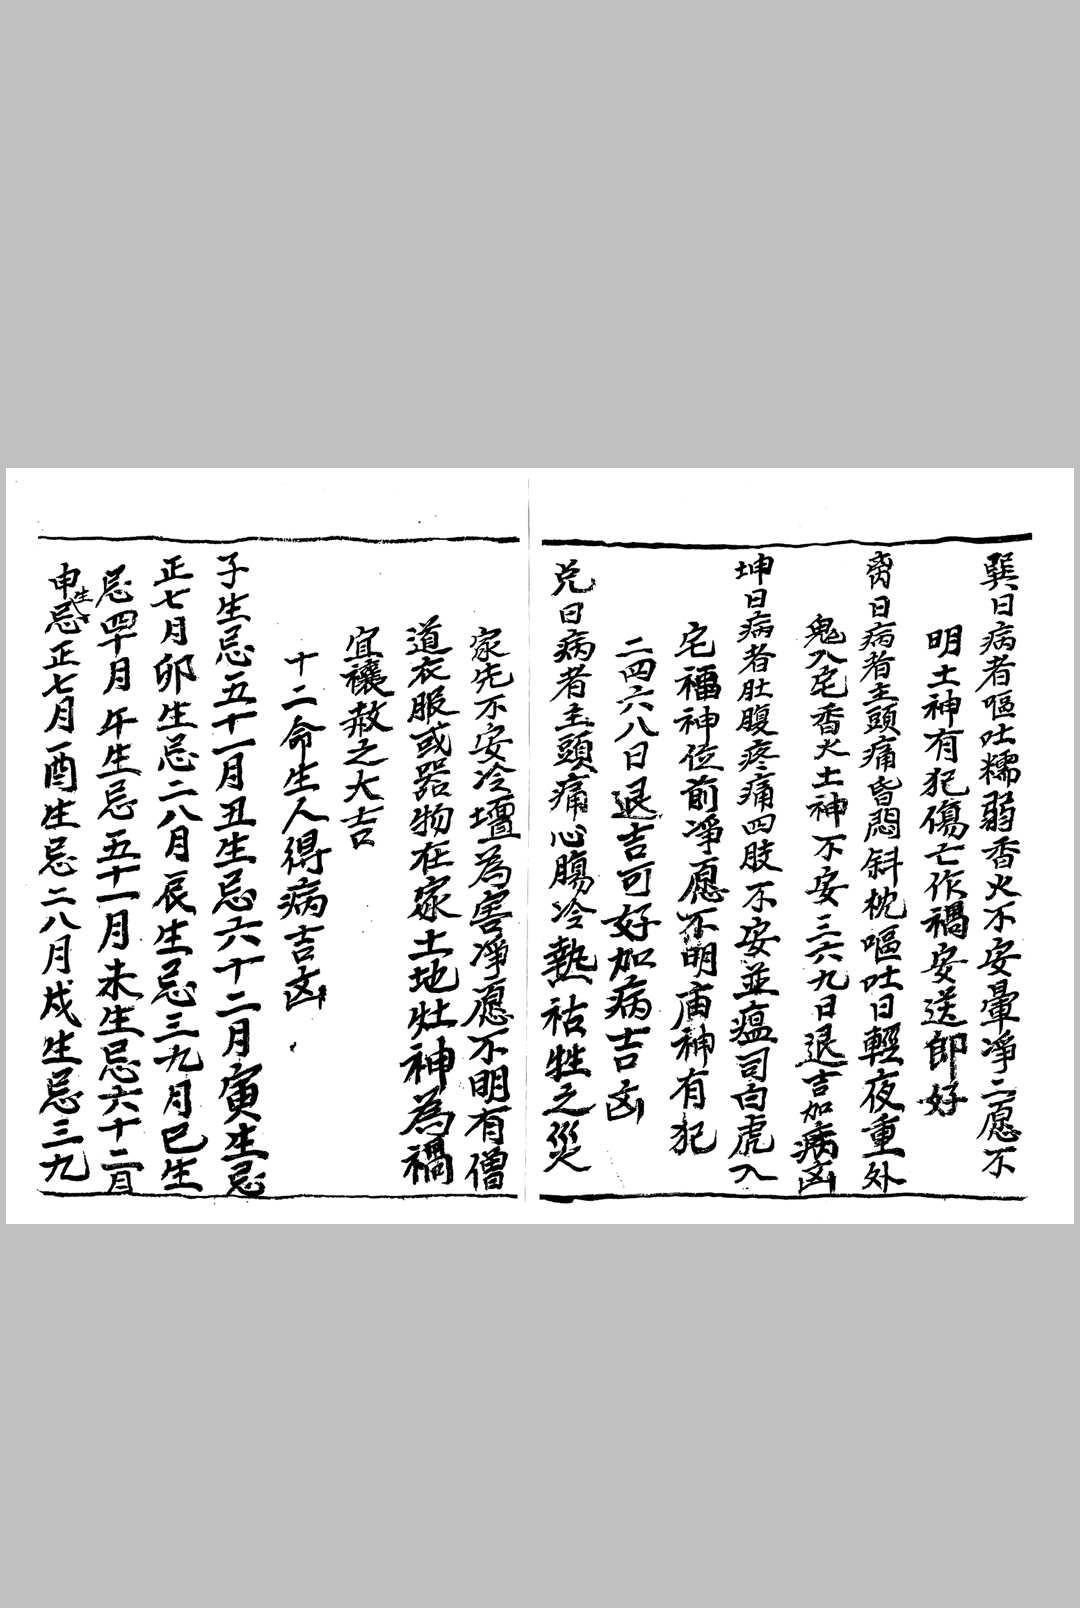 巽日病者嘔吐糯弱香火不安暈凈二愿不
明土神有犯傷亡作禍安送即好
离日病者主頭痛昏悶斜枕嘔吐日輕夜重外
鬼入宅香火土神不安三六九日退吉加病凶
坤日病者肚腹疼痛四肢不安並瘟司白虎入
宅福神位前凈愿不明庙神有犯
二四六八日退吉可好加病吉凶
兑日病者主頭痛心腸冷熱祜牲之災
家先不安冷壇為害凈愿不明有僧
道衣服或器物在家土地灶神為禍
宜禳赦之大吉
十二命生人得病吉凶
子生忌五十一月丑生忌六十二月寅生忌
正七月卯生忌二八月辰生忌三九月巳生
忌四十月午生忌五十一月未生忌六十二月
申生忌正七月酉生忌二八月戍生忌三九